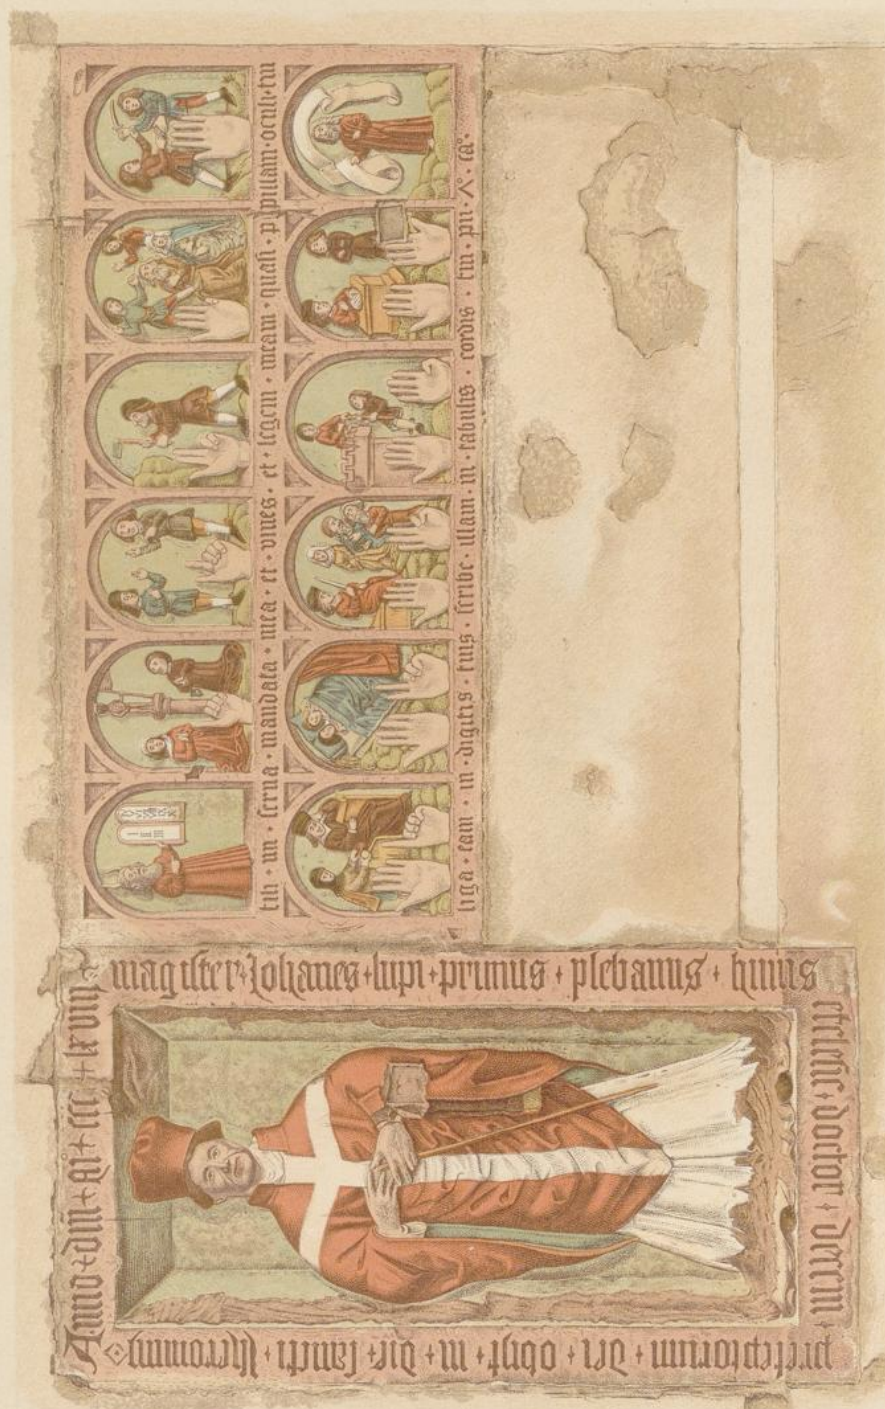 fili · mi · serua · mandata · mea · et · viues · et · legem · meam · quasi · pupillam · oculi · tui
liga · eam · in · digitis · tuis · scribe · illam · in · tabulis · cordis · tui · pu · Λ° · ca°
Anno + dm̄ + m° + ccc + lxviij
magister + Johanes + lupi + primus + plebanus + huius
ecclesie + doctor + decem +
preceptorum + dei + obyt + in + die + sancti + iheronimy